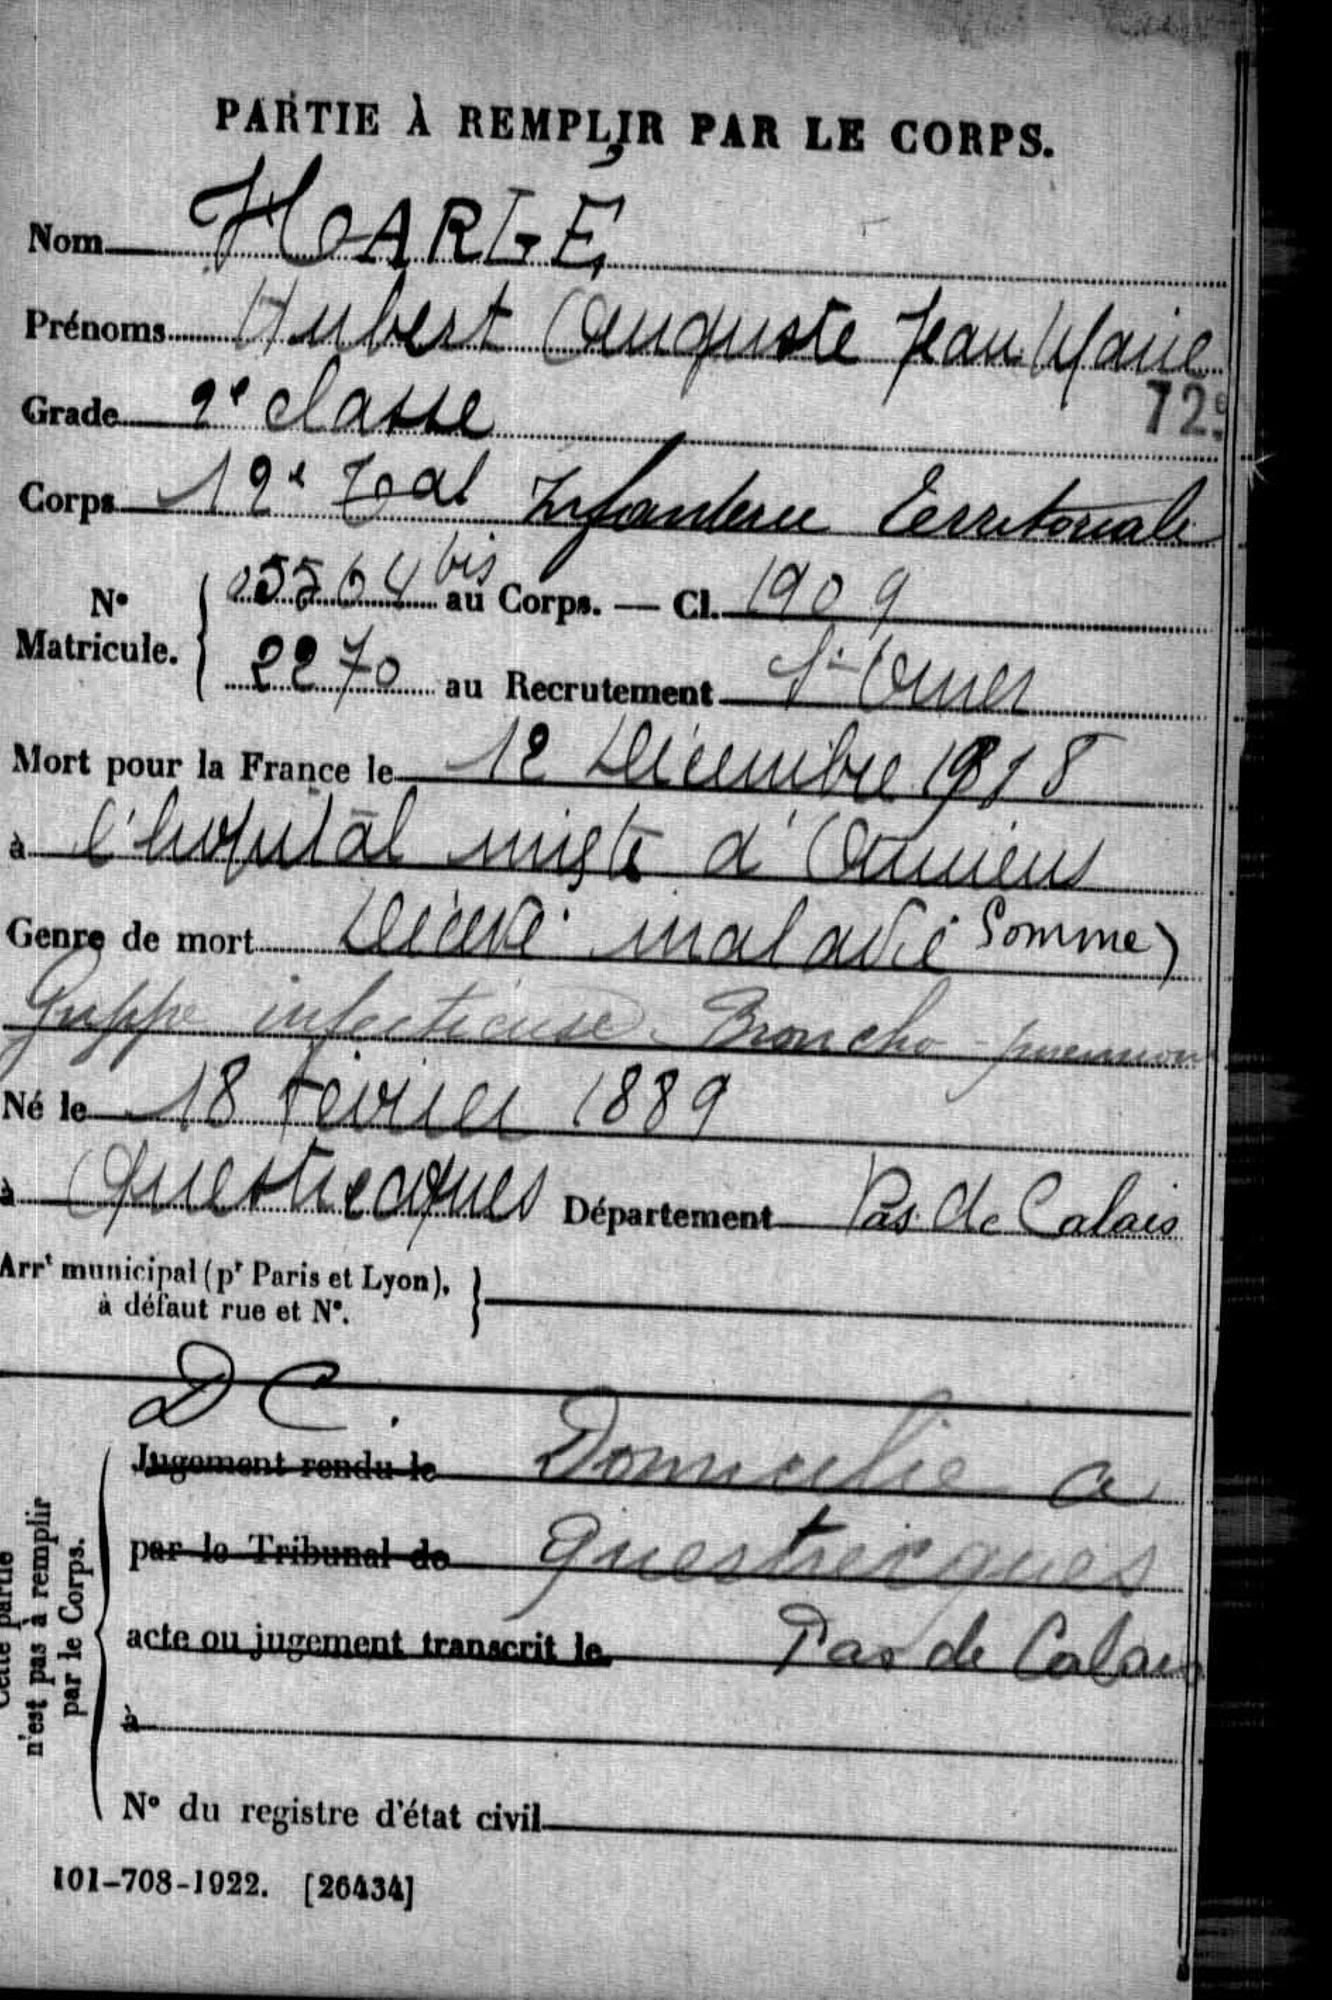 PARTIE À REMPLIR PAR LE CORPS.
Nom HARLÉ
Prénoms Hubert Auguste Jean Marie
72e
Grade 2e classe
Corps 12e Tal Infanterie Territoriale
No Matricule. 05564 bis au Corps. — Cl. 1909
2270 au Recrutement St Omer
Mort pour la France le 12 Décembre 1918
à l'hopital mixte d'Amiens
Genre de mort Décédé maladie Somme)
Grippe infectieuse Broncho-pneumonie
Né le 18 février 1889
à Questrecques Département Pas de Calais
Arrt municipal (pr Paris et Lyon),
à défaut rue et No.
D C.
Cette partie
n'est pas à remplir
par le Corps.
Jugement rendu le Domicilié a
par le Tribunal de Questrecques
acte ou jugement transcrit le Pas de Calais
à
No du registre d'état civil
101-708-1922. [26434]